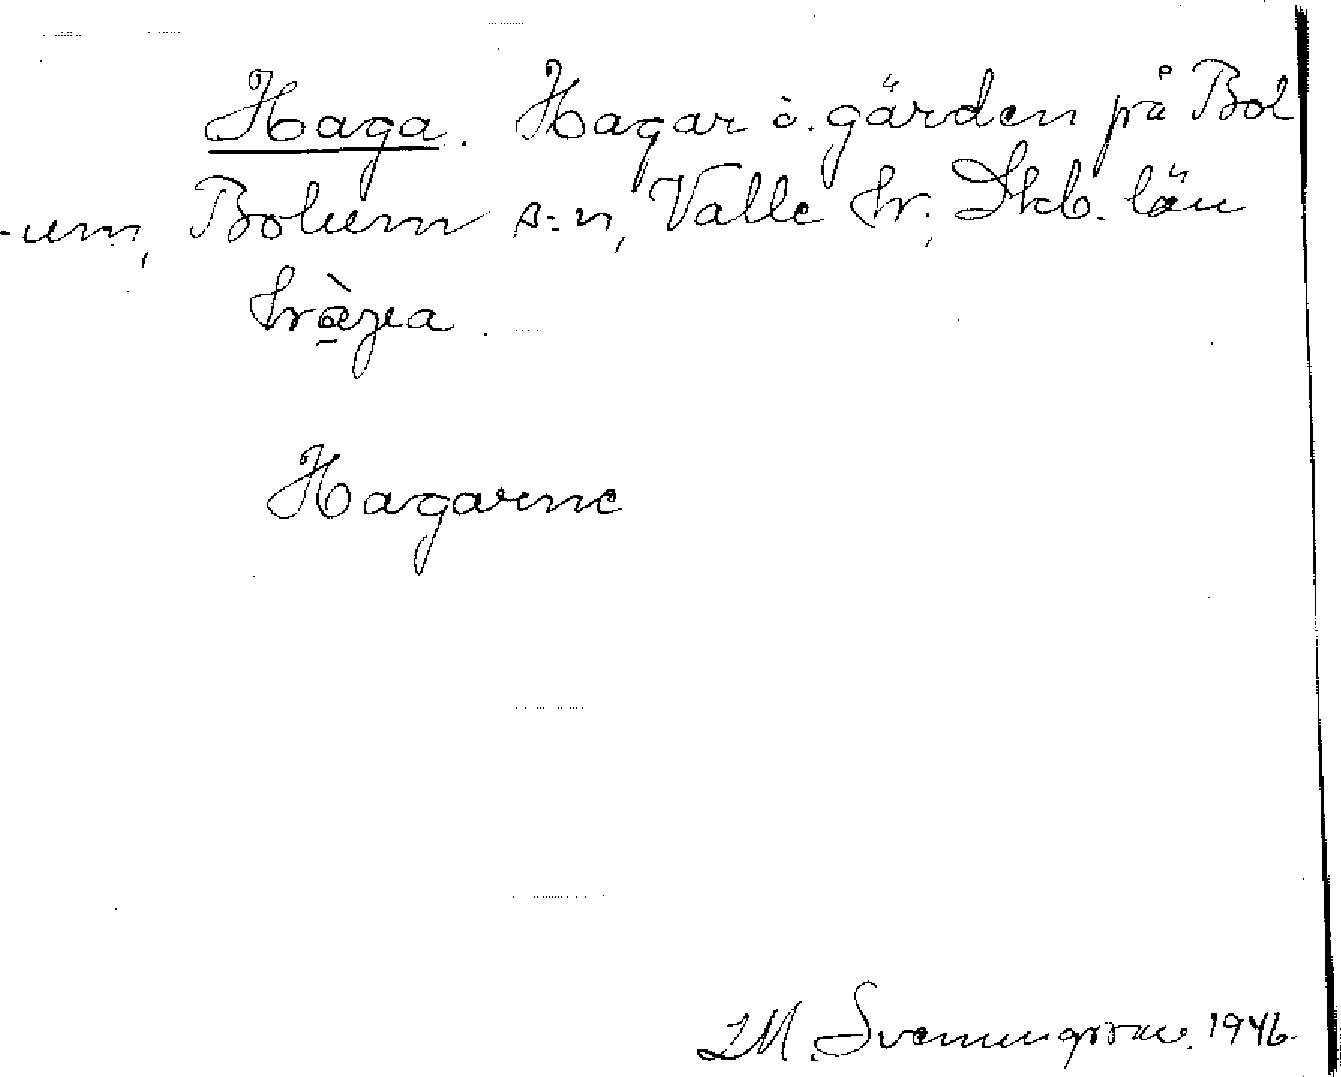 Haga. Hagar i. gärden på Bol
-um, Bolum s:n, Valle hr, Skb. län
hràɡɐa.
Hagarne
IM. Svennungsson. 1946